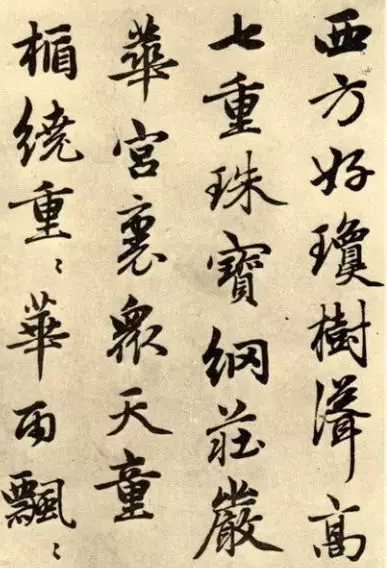 西方好瓊樹聳高
七重珠寶網莊嚴
華宮裏眾天童
楯繞重〻華雨飄〻